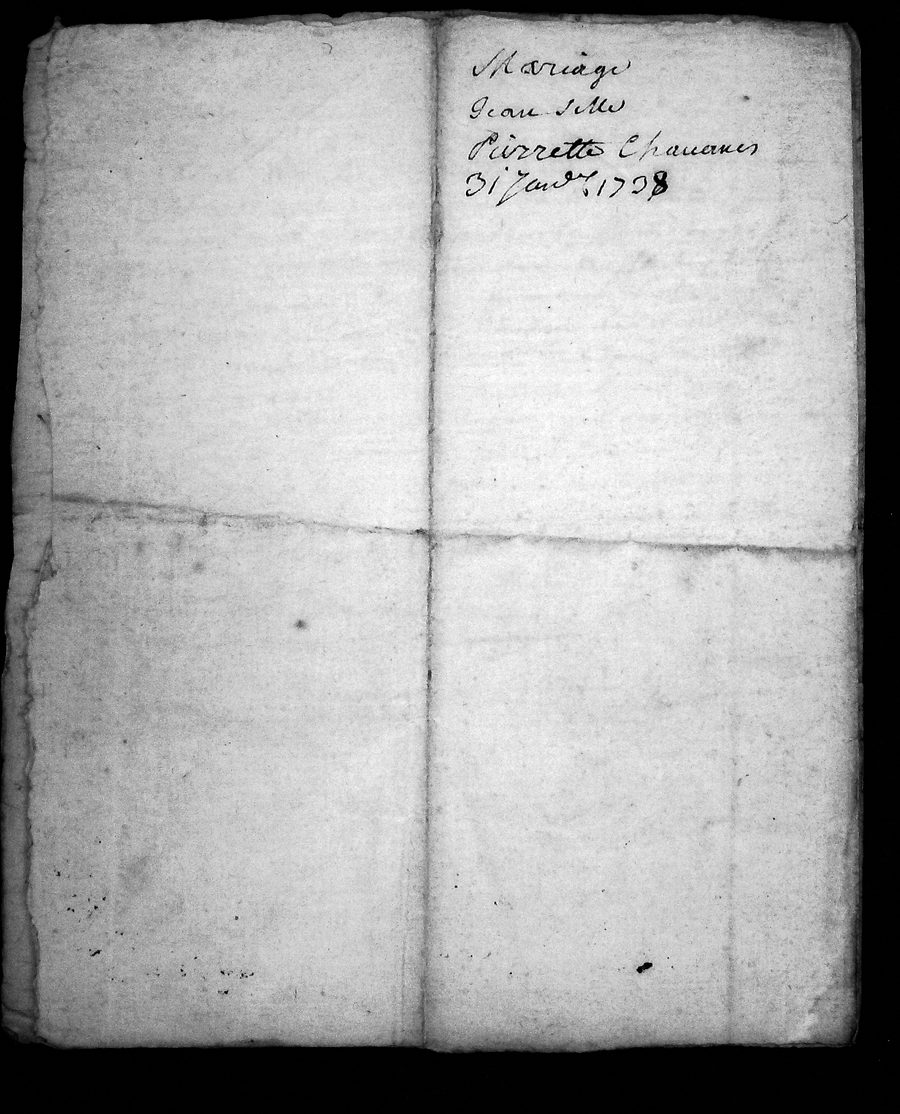 Mariage
Jean Selle
Pierrette Chauanes
31 Janv.r 1738